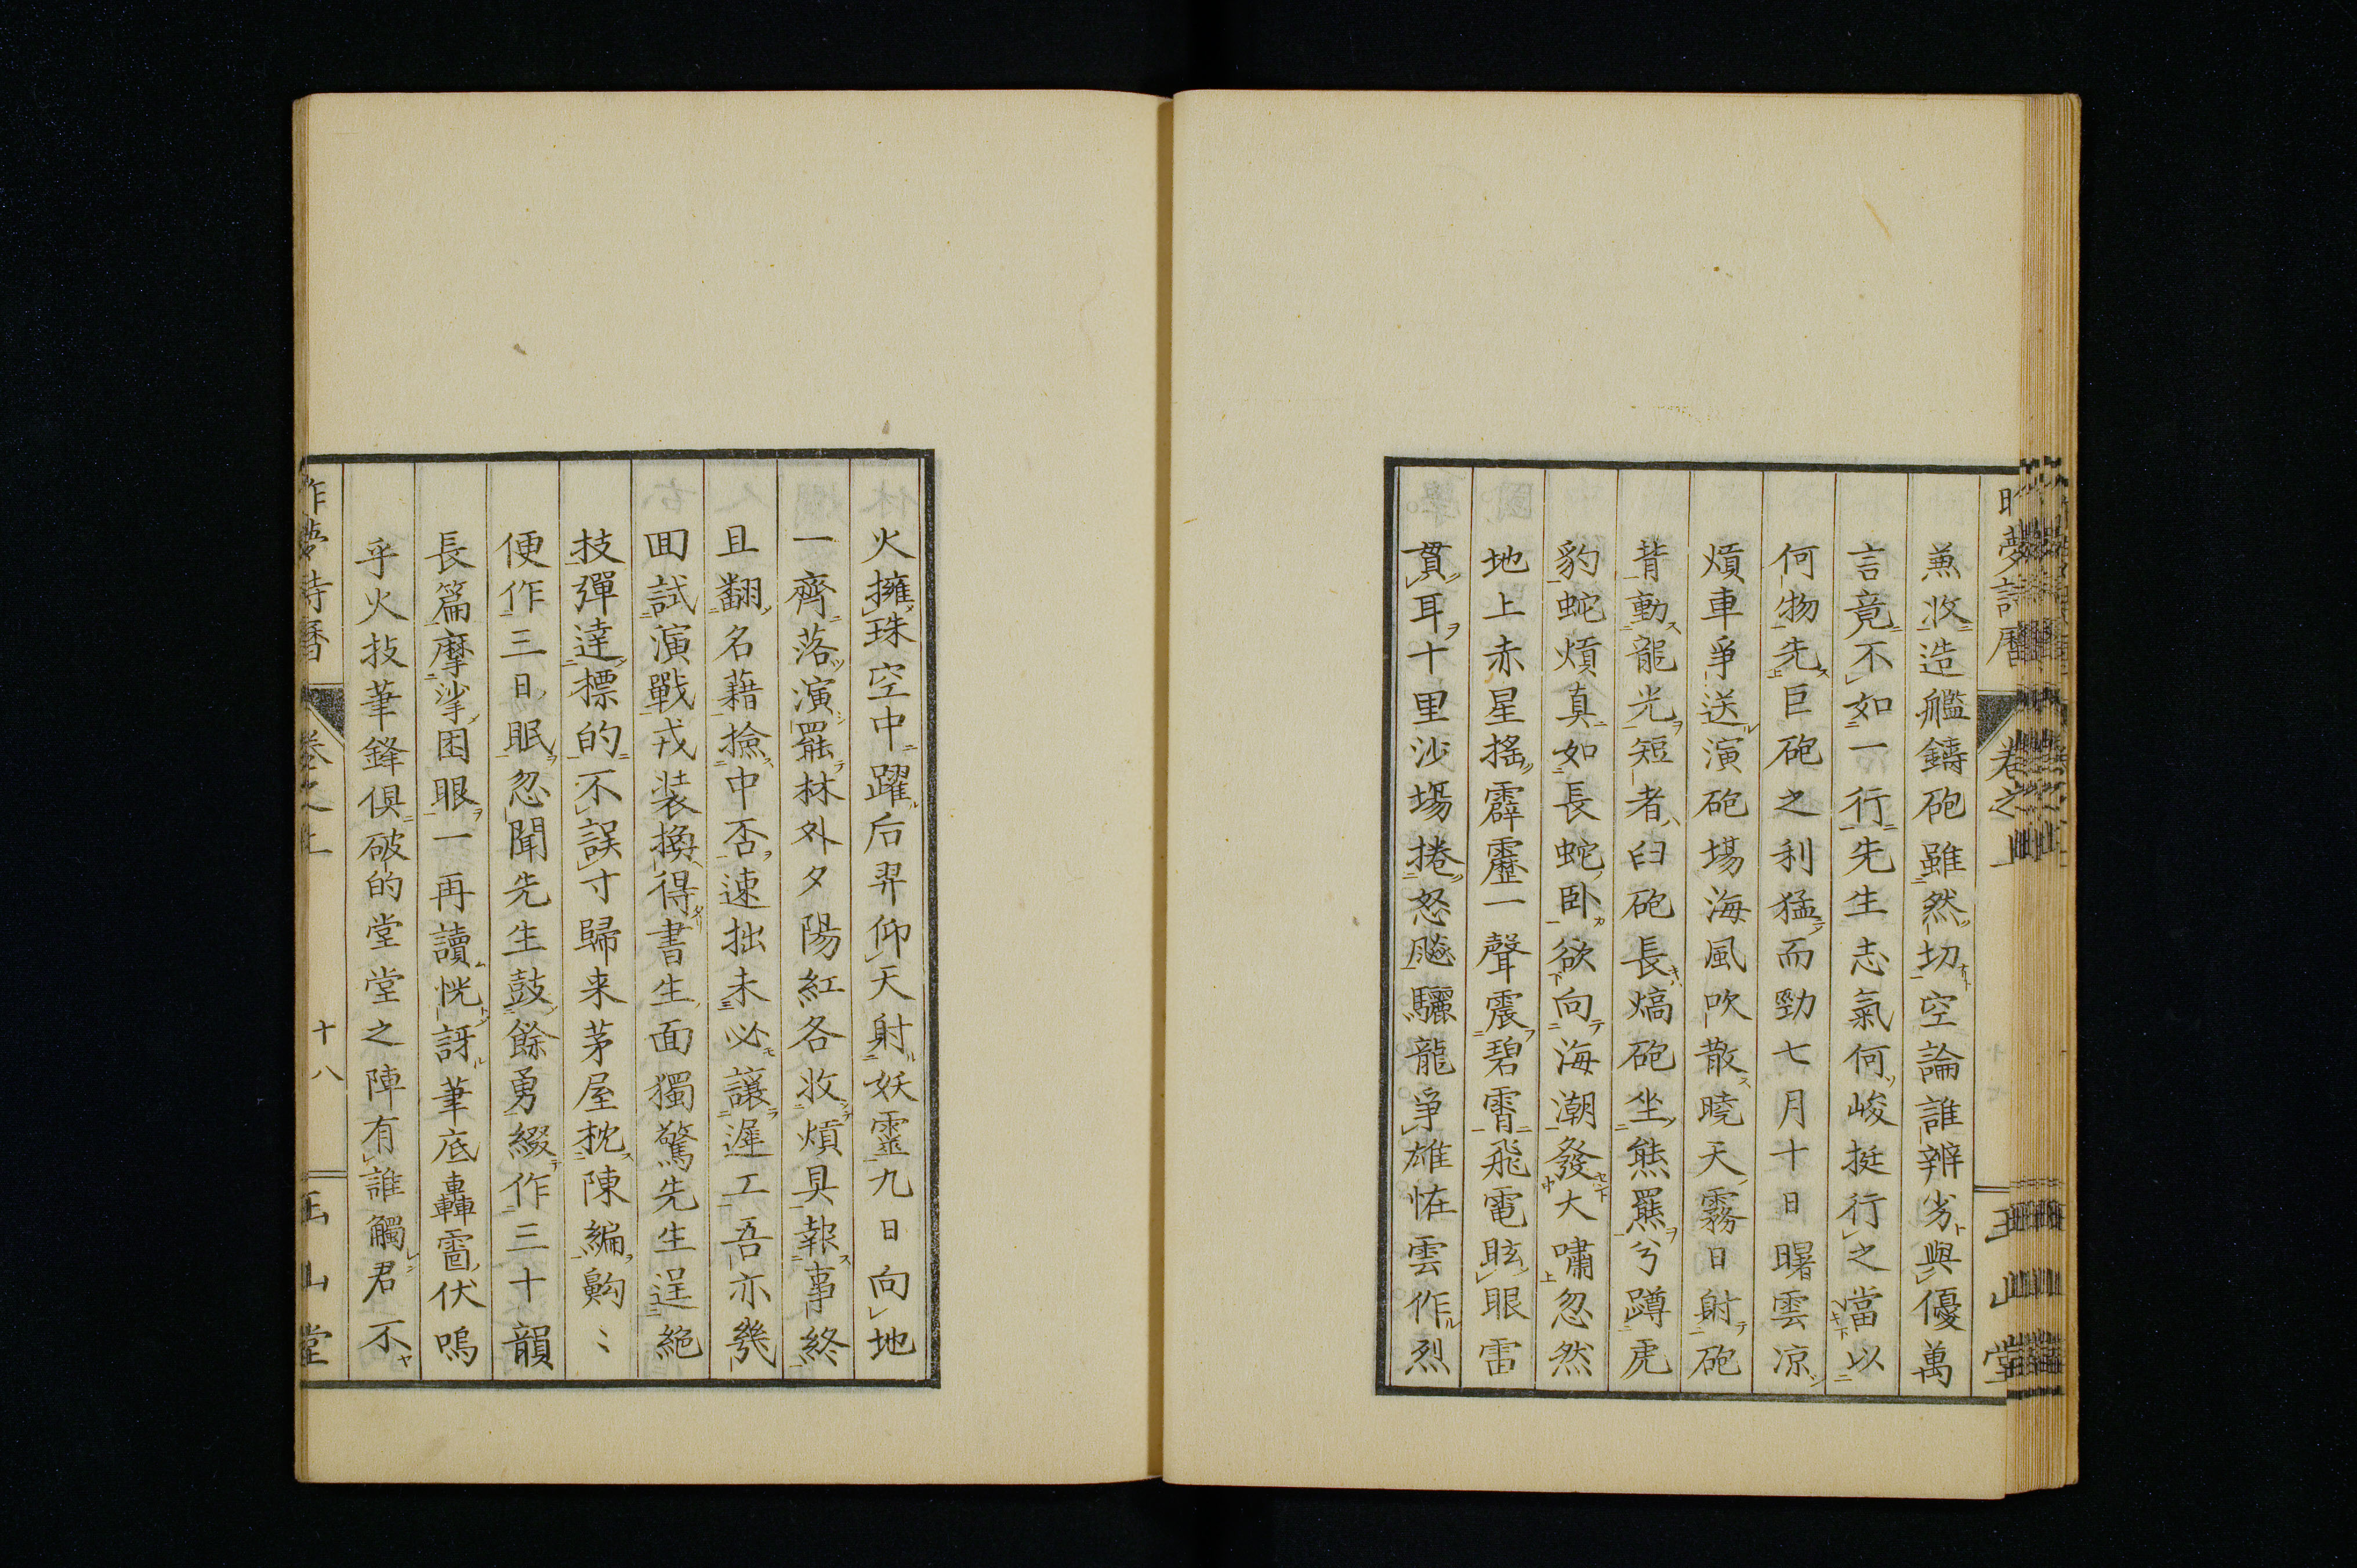 昨夢詩曆 卷之上 玉山堂
兼收造艦鑄砲雖然切空論誰辨劣與優萬
言竟不如一行先生志氣何峻挺行之當以
何物先巨砲之利猛而勁七月十日曙雲凉
熕車爭送演砲塲海風吹散曉天霧日射砲
背動龍光短者臼砲長熇砲坐熊羆兮蹲虎
豹蛇熕真如長蛇卧欲向海潮發大嘯忽然
地上赤星搖霹靂一聲震碧霄飛電眩眼雷
貫耳十里沙塲捲怒飈驪龍爭雄恠雲作烈
火擁珠空中躍后羿仰天射妖靈九日向地
一齊落演罷林外夕陽紅各收熕具報事終
且翻名藉撿中否速拙未必讓遲工吾亦幾
囬試演戰戎装換得書生面獨驚先生逞絶
技彈達標的不誤寸歸来茅屋枕陳編齁〻
便作三日眠忽聞先生鼓餘勇綴作三十韻
長篇摩挲困眼一再讀恍訝筆底轟雷伏嗚
乎火技筆鋒俱破的堂堂之陣有誰觸君不
昨夢詩曆 卷之上 十八 玉山堂